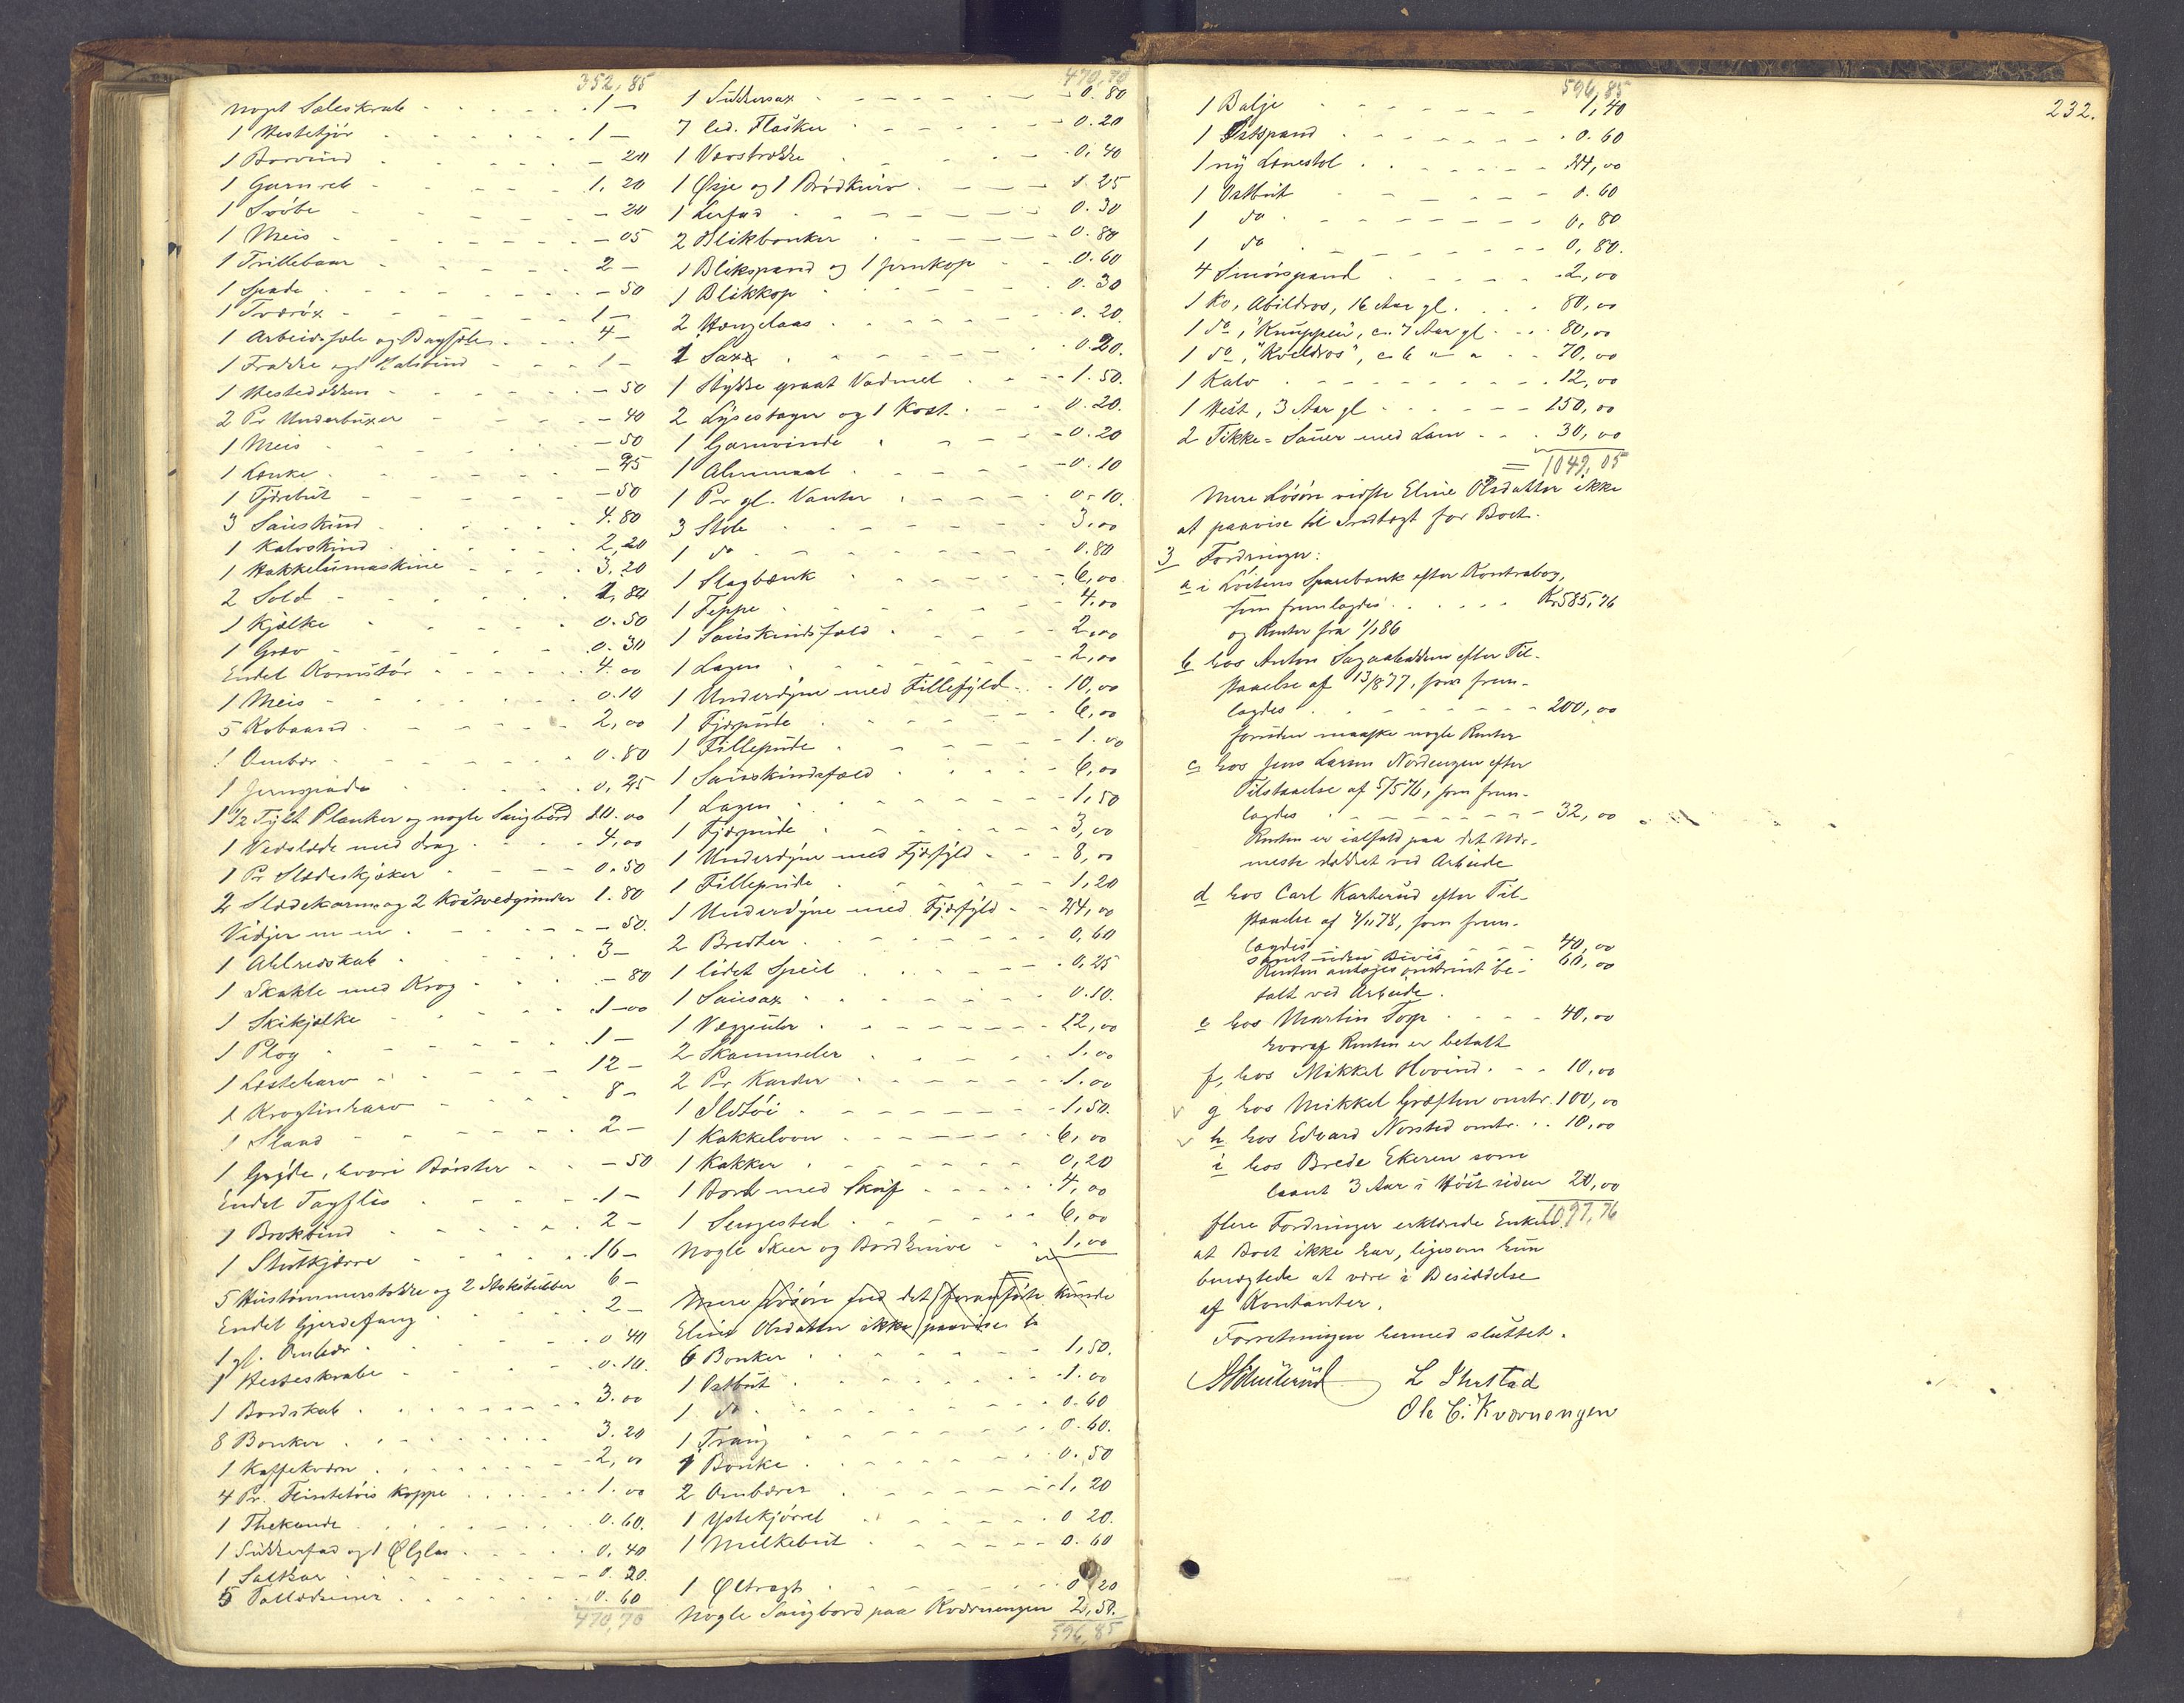 352,85
noget Sæleskrab - 1 -
1 Hestetjór - 1 -
1 Borvind - 20
1 Garnreb - 1.20
1 Svöbe - 20
1 Meis - 05
1 Trillebaar - 2 -
1 Spade - 50
1 Tværöx - 1 -
1 Arbeidssele og Bagsele - 4 -
1 Frakke og 1 Halsbind - 1 -
1 Hestedækken - 50
2 Pr Underbuxer - 40
1 Meis - 50
1 Lænke - 25
1 Tjærebut - 50
3 Saueskind - 4.80
1 Kalvskind - 2,20
1 Hakkelsmaskine - 3.20
2 Sold - 1,80
1 Kjælke - 0.50
1 Grev - 0.30
Endel Kornstör - 4.00
1 Meis - 0.10
5 Kobaand - 2,00
1 Ambar - 0.80
1 Jernspade - 0,25
1 1/2 Tylt Planker og nogle Saugbord 10.00
1 Vedslæde med drag - 4,00
1 Pr Slædeskjæker - 0.50
2 Slædekarme og 2 Kostvedgrinder 1.80
Vidjer m m - 50.
1 Ahlredskab - 3 -
1 Skakle med Krog - 80
1 Skikjælke - 1-00
1 Plog - 1 -
1 Losteharv - 12 -
1 Krogtinharv - 8 -
1 Staand - 2 -
1 Gryde, hvori Börster - 50
Endel Tagflis - 1 -
1 Brokbind - 2 -
1 Stutkjærre - 16 -
5 Hustömmerstokke og 2 Stokstubber 6 -
Endel Gjerdefang - 2 -
1 gl. Ambar - 0 40
1 Hesteskrabe - 0.10.
1 Bordskab - 3.00
8 Bonker - 3.20
1 Kaffekværn - 2,00
4 Pr. Steintöis Koppe - 1.00
1 Thekande - 0.60.
1 Sukkerfad og 1 Ølglas - 0,40
1 Saltkar - 0.20.
5 Tallerkener - 0.60
470,70
470,70
1 Sukkersax - 0.80
7 led. Flasker - 0.20
1 Vaostrokke - 0,40
1 Øsje og 1 Brödkurv - 1.25
1 Lerfad - 0.30
2 Blikbonker - 0.80
1 Blikspand og 1 jernkop - 0.60
1 Blikkop - 0.30
2 Hængelaas - 0.20
1 Sax - 0.20.
1 Stykke graat Vadmel - 1.50.
2 Lysestager og 1 Kost - 0.20.
1 Garnvinde - 0.20
1 Alenmaal - 0.10
1 Pr gl. Vanter - 0.10.
3 Stole - 3.00
1 do - 0.80
1 Slagbænk - 6,00
1 Teppe - 4.00
1 Saueskindsfæld - 2.00
1 Lagen - 2,00
1 Underdyne med Fillefyld - 10,00
1 Fjærpude - 6,00
1 Fillepude - 1.00
1 Saueskindsfæld - 6,00
1 Lagen - 1,50
1 Fjærpude - 3,00
1 Underdyne med Fjærfyld - 8,00
1 Fillepude - 1,20
1 Underdyne med Fjærfyld - 24,00
2 Bredter - 0,60
1 lidet Speil - 0,25
1 Sauesax - 0.10.
1 Væggeuhr - 12,00
2 Skammeler - 1.00
2 Pr Karder - 1.00
1 Ildtöi - 1,50.
1 Kakkelovn - 6,00
1 Kakker - 0,20
1 Bord med Skuf - 4,00
1 Sengested - 6,00
Nogle Skeer og Bordknive - 1,00
Mere Lösöre end det foranförte kunde
Eline Olsdatter ikke paavise
6 Bonker - 1,50.
1 Ostbut - 1.00
1 do - 0.60
1 Traug - 0.60.
1 Bonke - 0.50
2 Ambarer - 1,20
1 Ystekjörrel - 0 20.
1 Melkebut - 0.60
1 Øltragt - 0,20
Nogle Saugbord paa Kværnengen 2,50.
596,85
232.
596,85
1 Balje - 1,40
1 Øskspand - 0.60
1 ny Lænestol - 24,00
1 Ostbut - 0.60
1 do - 0,80
1 do - 0,80.
4 Smörspand - 2,00
1 Ko, Abildros, 16 Aar gl. - 80,00
1 do, "Knuppen", c. 7 Aar gl - 80,00
1 do, "Kveldros", c. 6 " " - 70,00
1 Kalv - 12,00
1 Hest, 3 Aar gl - 150,00
2 Tikke-Sauer med Lam - 30,00
= 1049,05
Mere Lösöre vidste Eline Olsdatter ikke
at paavise til Indtægt for Boet.
3 Fordringer:
a i Löitens Sparebank efter Kontrabog,
som fremlagdes - Kr 585,76
og Renter fra 1/1 86
b hos Anton Sagaabakken efter Til-
staaelse af 13/8 77, som frem-
lagdes - 200,00
foruden maaske nogle Renter
c, hos Jens Larsen Nordengen efter
Tilstaaelse af 5/5 76, som frem-
lagdes - 32,00
Renten er ialfald paa det når-
meste dækket ved Arbeide
d hos Carl Karterud efter Til-
staaelse af 4/11 78, som frem-
lagdes - 40,00
samt uden Bevis - 60,00
Renten antages omtrent be-
talt ved Arbeide.
e hos Martin Torp - 40,00
hvoraf Renten er betalt
f, hos Mikkel Hovind - 10,00
g hos Mikkel Græften omtr. 100,00
h hos Edvard Norsted omtr. 10,00
i hos Brede Ekeren som
laant 3 Aar i Höst siden 20,00
1097,76
flere Fordringer erklærede Enken
at Boet ikke har, ligesom hun
benægtede at være i Besiddelse
af Kontanter.
Forretningen hermed sluttet.
L Ihrstad
Ole C. Kværnengen